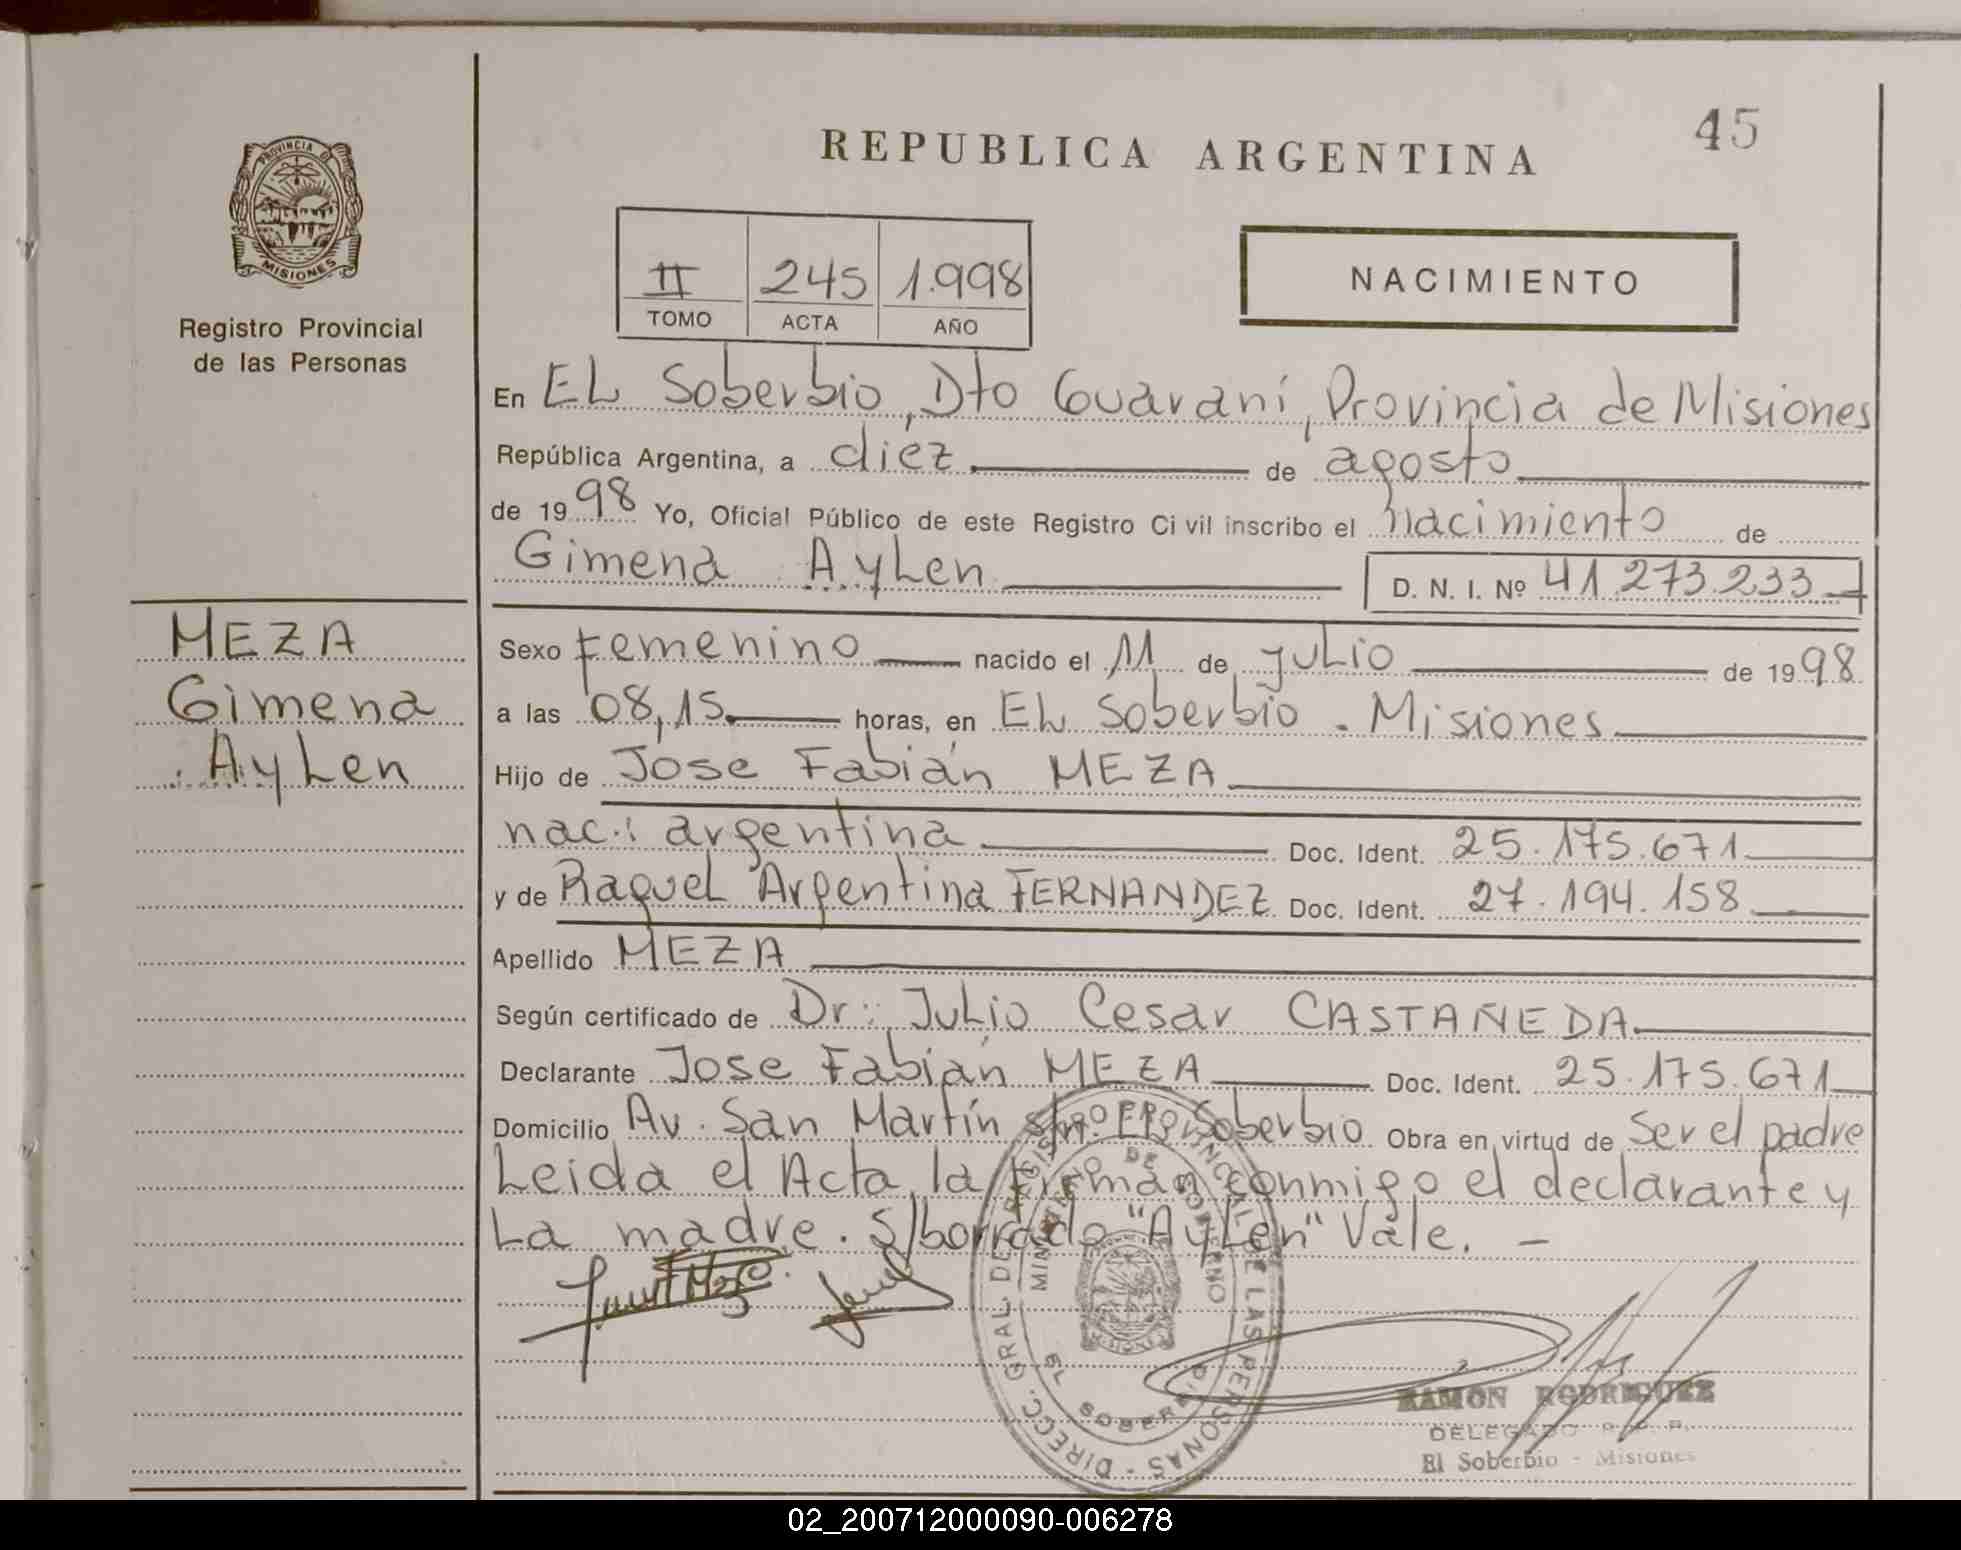 45
REPUBLICA ARGENTINA
PROVINCIA DE
MISIONES
Registro Provincial
de las Personas
II 245 1.998
TOMO ACTA AÑO
NACIMIENTO
En EL Soberbio, Dto Guaraní, Provincia de Misiones
República Argentina, a diez de agosto
de 1998 Yo, Oficial Público de este Registro Civil inscribo el nacimiento de
Gimena AyLen D. N. I. Nº 41.273.233
MEZA
Gimena
AyLen
Sexo Femenino nacido el 11 de juLio de 1998
a las 08,15 horas, en EL Soberbio - Misiones
Hijo de Jose Fabián MEZA
nac: argentina Doc. Ident. 25.175.671
y de RaqueL Argentina FERNANDEZ Doc. Ident. 27.194.158
Apellido MEZA
Según certificado de Dr: JuLio Cesar CASTAÑEDA
Declarante Jose Fabián MEZA Doc. Ident. 25.175.671
Domicilio Av. San Martín s/nº EL Soberbio Obra en virtud de Ser el padre
Leida el Acta, la firman conmigo el declarante y
La madre. S/borrado "AyLen" Vale. -
DIRECC. GRAL. DE REGISTRO PROVINCIAL DE LAS PERSONAS
MINISTERIO DE GOBIERNO
EL SOBERBIO
RAMON RODRIGUEZ
DELEGADO R. P. P.
El Soberbio - Misiones
02_200712000090-006278